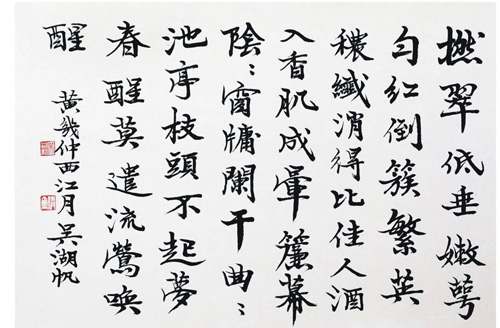 撚翠低垂嫩萼
勻紅倒簇繁英
穠纖消得比佳人酒
入香肌成暈簾幕
陰〻窗牖闌干曲〻
池亭枝頭不起夢
春醒莫遣流鶯喚
醒
黄幾仲西江月 吳湖帆